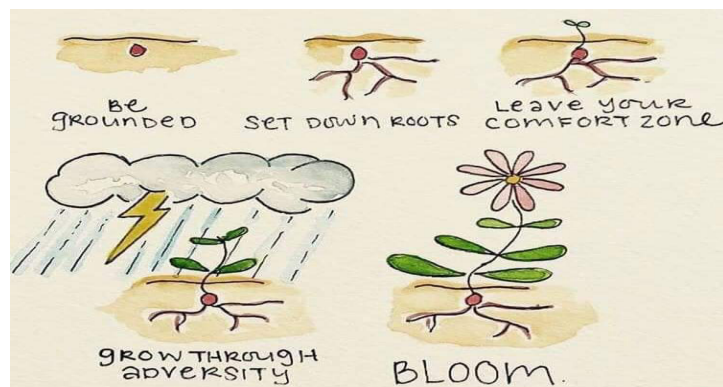 Be
GROUNDED
SET DOWN ROOTS
Leave your
COMFORT ZONE
GROW THROUGH
ADVERSITY
BLOOM.